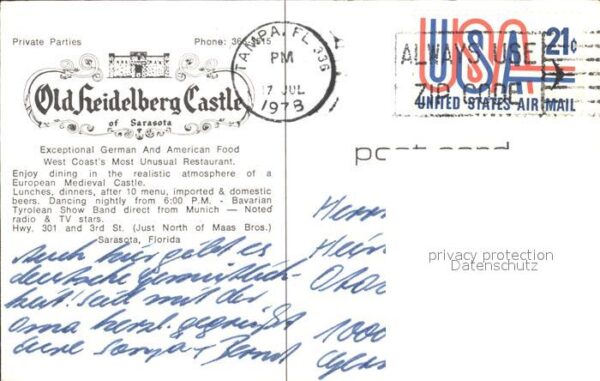 Private Parties Phone: 36
Old Heidelberg Castle
of Sarasota
Exceptional German And American Food
West Coast's Most Unusual Restaurant.
Enjoy dining in the realistic atmosphere of a
European Medieval Castle.
Lunches, dinners, after 10 menu, imported & domestic
beers. Dancing nightly from 6:00 P.M. - Bavarian
Tyrolean Show Band direct from Munich — Noted
radio & TV stars.
Hwy. 301 and 3rd St. (Just North of Maas Bros.)
Sarasota, Florida
Auch hier gibt es
deutsche Gemütlich-
keit! Seid mit der
Oma herzl. gegrüßt
eure Sonja + Bernd
TAMPA, FL 336
PM
17 JUL
1973
ALWAYS USE
ZIP CODE
USA 21¢
UNITED STATES AIR MAIL
post card
Herrn
Hein
1000
privacy protection
Datenschutz